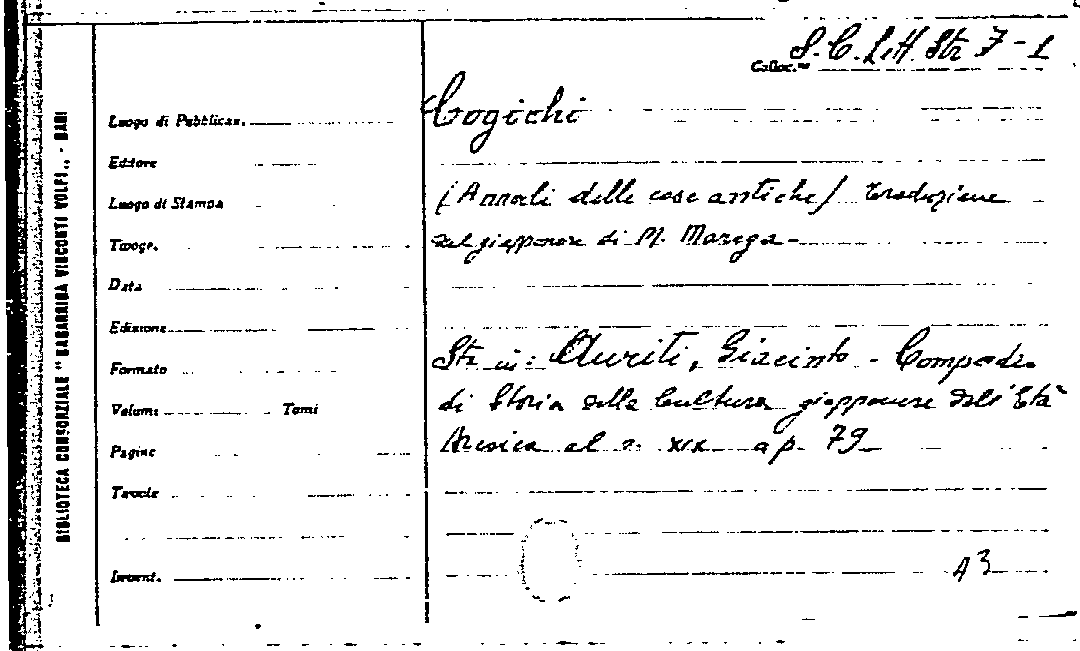 S.C. Litt. Str 7-1
Colloc.ne
Cogichi
(Annali delle cose antiche) traduzione
dal giapponese di M. Marega-
Sta in: Auriti, Giacinto - Compendio
di Storia della Cultura giapponese dall'Età
Arcaica al s. XIX a p. 79
A3
Luogo di Pubblicaz.
Editore
Luogo di Stampa
Tipogr.
Data
Edizione
Formato
Volumi Tomi
Pagine
Tavole
Invent.
BIBLIOTECA CONSORZIALE "SAGARRIGA VISCONTI VOLPI" - BARI